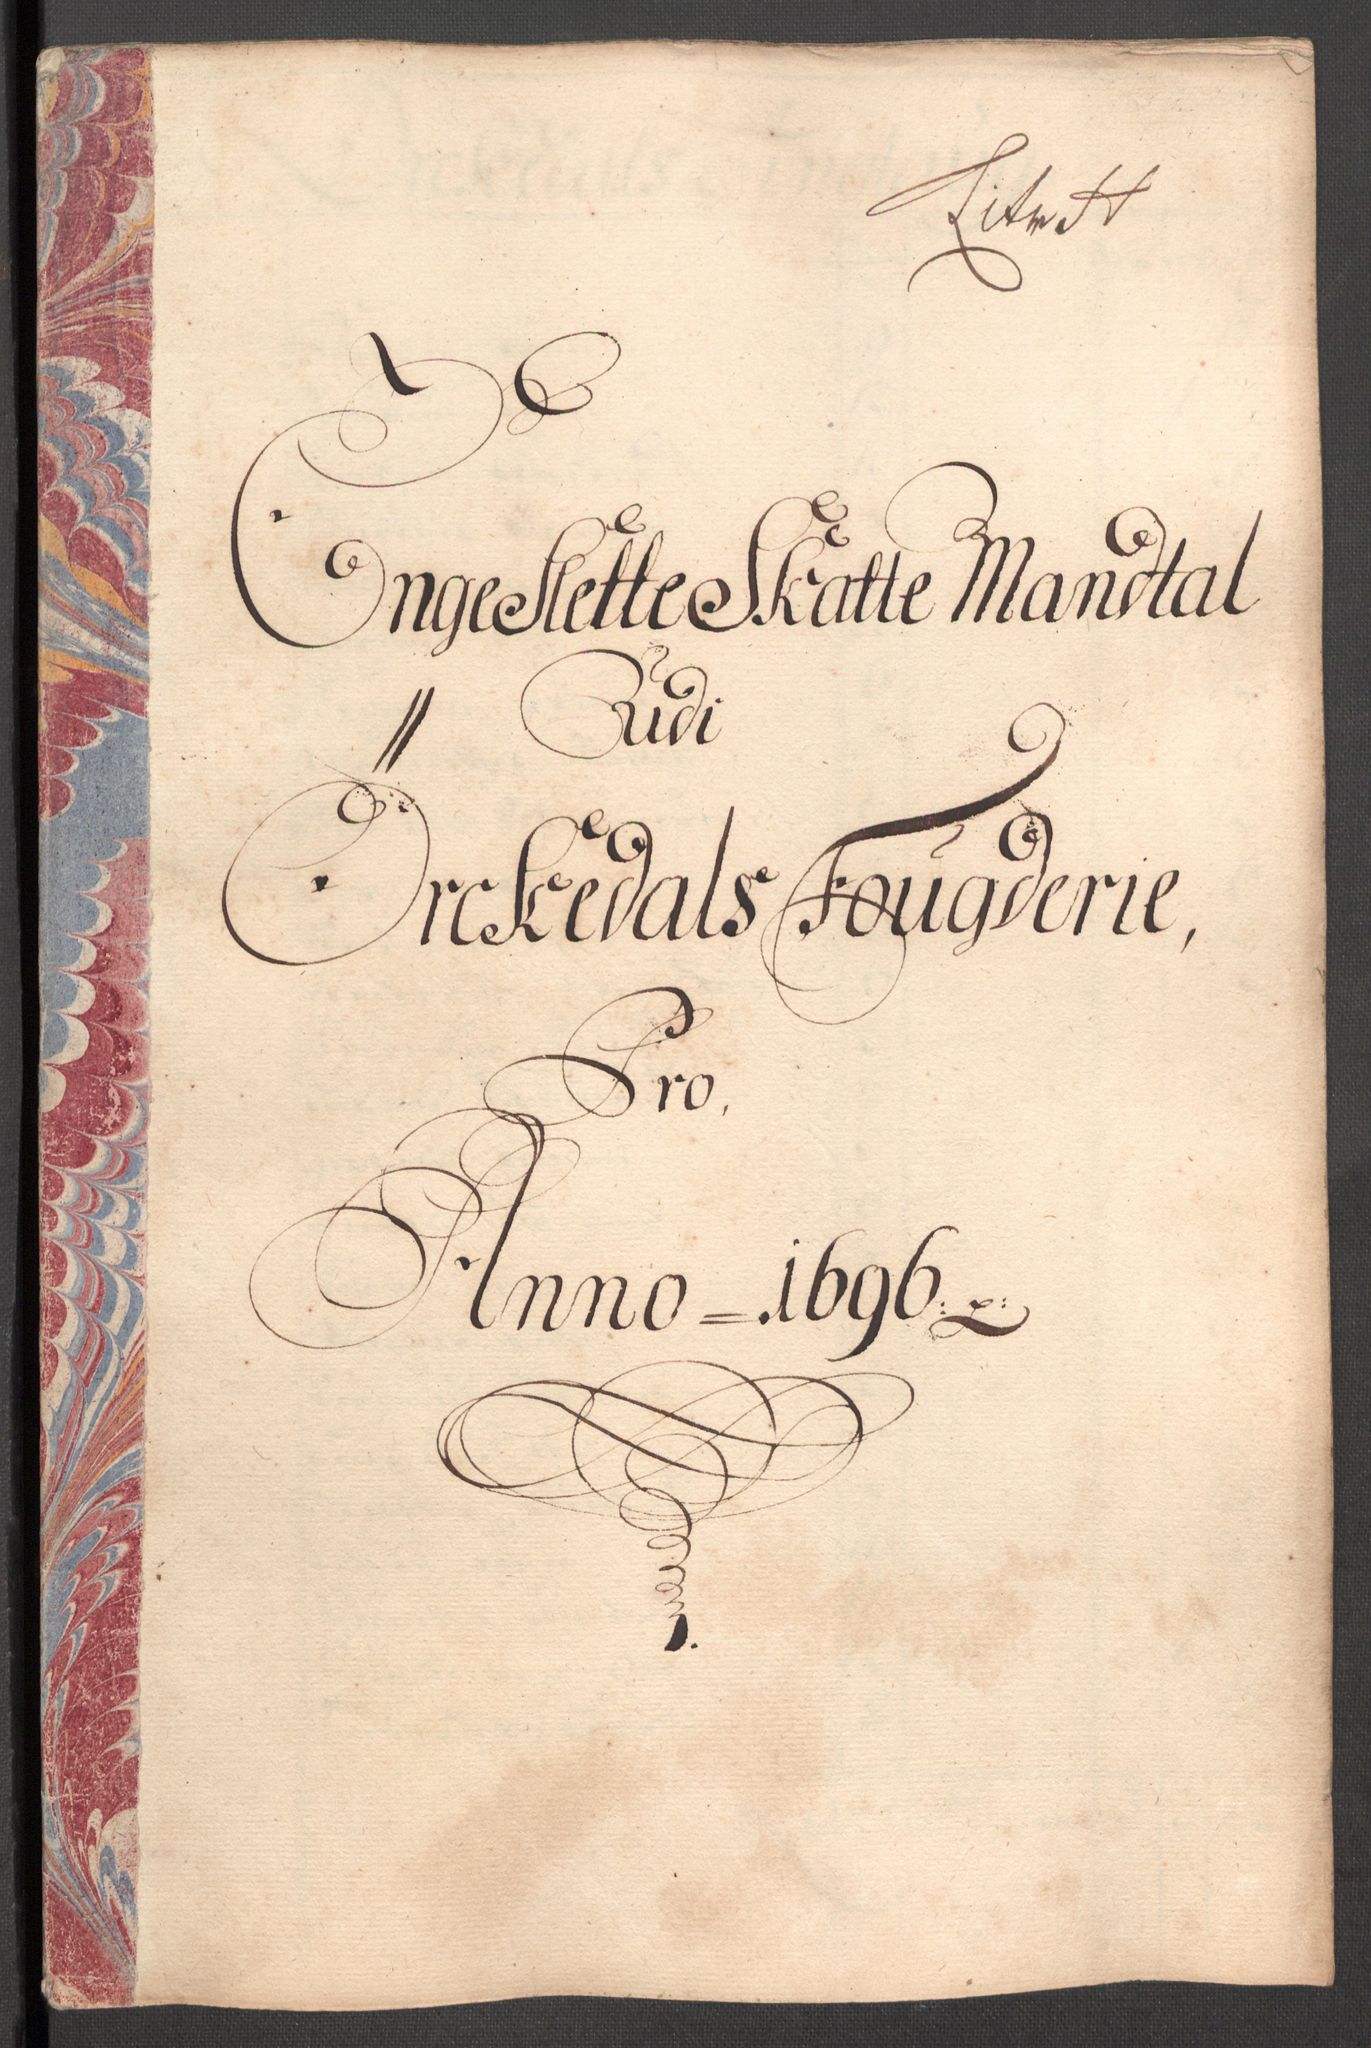 Litr: H
Engeslette Skatte Mandtal
Udi
Orckedals Fougderie,
Pro,
Anno = 1696